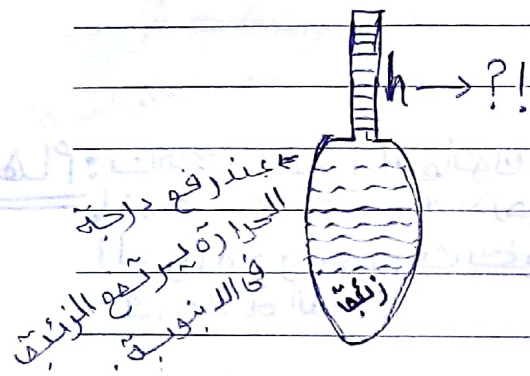 h → ?!
* عند رفع درجة
الحرارة يرتفع الزئبق
فى الانبوبة.
زئبق